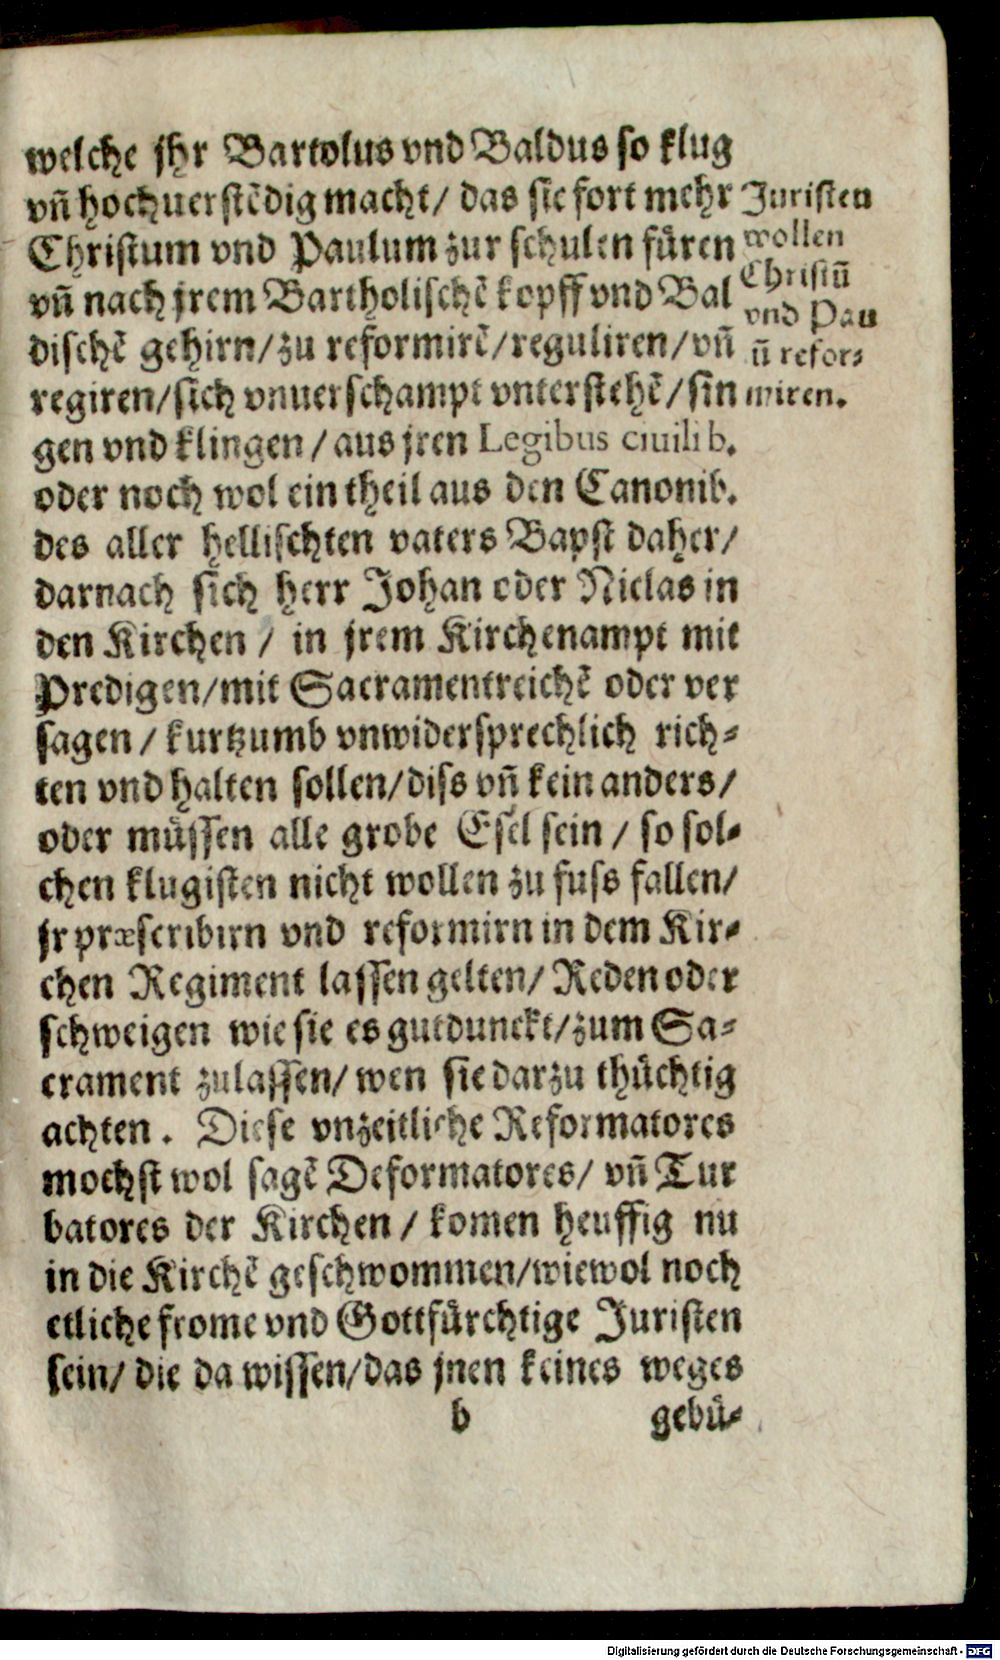 welche jhr Bartolus vnd Baldus so klug
vñ hochuerstẽdig macht/ das sie fort mehr
Christum vnd Paulum zur schulen fůren
vñ nach jrem Bartholischẽ kopff vnd Bal
dischẽ gehirn/zu reformirẽ/reguliren/vñ
regiren/sich vnuerschampt vnterstehẽ/sin
gen vnd klingen/aus jren Legibus ciuilib.
oder noch wol ein theil aus den Canonib.
des aller hellischten vaters Bapst daher/
darnach sich herr Johan oder Niclas in
den Kirchen/ in jrem Kirchenampt mit
Predigen/mit Sacramentreichẽ oder ver
sagen/kurtzumb vnwidersprechlich rich-
ten vnd halten sollen/diss vñ kein anders/
oder můssen alle grobe Esel sein/ so sol-
chen klugisten nicht wollen zu fuss fallen/
jr præscribirn vnd reformirn in dem Kir-
chen Regiment lassen gelten/ Reden oder
schweigen wie sie es gutdunckt/zum Sa-
crament zulassen/ wen sie darzu thůchtig
achten. Diese vnzeitliche Reformatores
mochst wol sagẽ Deformatores/ vñ Tur
batores der Kirchen/ komen heuffig nu
in die Kirchẽ geschwommen/wiewol noch
etliche frome vnd Gottfůrchtige Juristen
sein/ die da wissen/das jnen keines weges
b gebů-
Juristen
wollen
Christũ
vnd Pau
ũ refor-
miren.
Digitalisierung gefördert durch die Deutsche Forschungsgemeinschaft - DFG